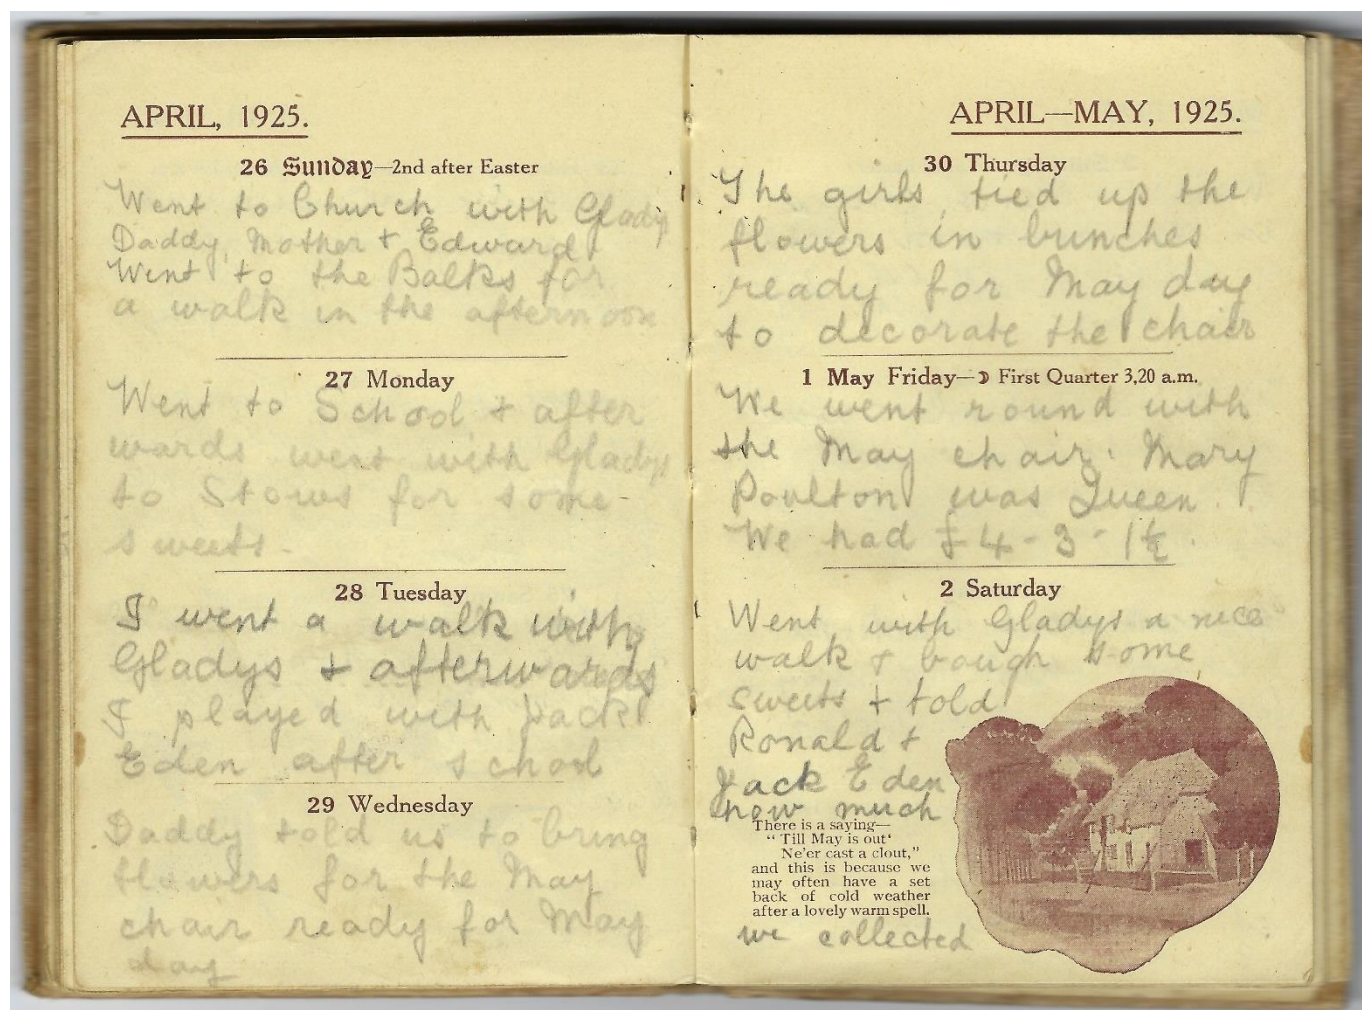 APRIL, 1925.
26 Sunday—2nd after Easter
Went to Church with Gladys
Daddy, Mother + Edward
Went to the Balks for
a walk in the afternoon
27 Monday
Went to School + after
wards went with Gladys
to Stows for some-
sweets-
28 Tuesday
I went a walk with
Gladys + afterwards
I played with Jack
Eden after school
29 Wednesday
Daddy told us to bring
flowers for the May
chair ready for May
day
APRIL—MAY, 1925.
30 Thursday
The girls tied up the
flowers in bunches
ready for May day
to decorate the chair
1 May Friday—☽ First Quarter 3,20 a.m.
We went round with
the May chair. Mary
Poulton was Queen.
We had £4-3-1½.
2 Saturday
Went with Gladys a nice
walk + bough some
sweets + told
Ronald +
Jack Eden
how much
There is a saying—
“ Till May is out‘
Ne'er cast a clout,”
and this is because we
may often have a set
back of cold weather
after a lovely warm spell.
we collected